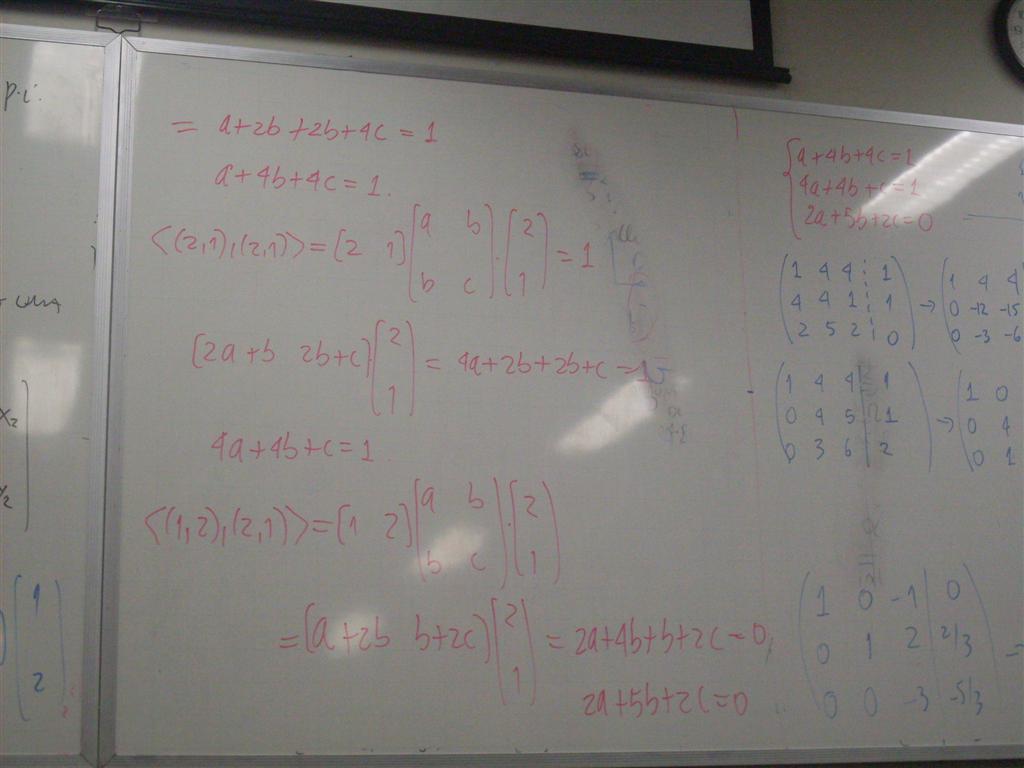 p.i.
= a+2b+2b+4c = 1
a+4b+4c = 1.
⟨(2,1),(2,1)⟩ = [2 1] [a b; b c] · [2; 1] = 1
[2a+b 2b+c] [2; 1] = 4a+2b+2b+c = 1
4a+4b+c = 1
⟨(1,2),(2,1)⟩ = [1 2] [a b; b c] · [2; 1]
= [a+2b b+2c] [2; 1] = 2a+4b+b+2c = 0
2a+5b+2c = 0
x2
1
2
a+4b+4c = 1
4a+4b+c = 1
2a+5b+2c = 0
1 4 4 1 → 1 4 4
4 4 1 1 0 -12 -15
2 5 2 0 0 -3 -6
1 4 4 1 → 1 0
0 4 5 1 0 4
0 3 6 2 0 1
1 0 -1 0
0 1 2 2/3
0 0 -3 -5/3